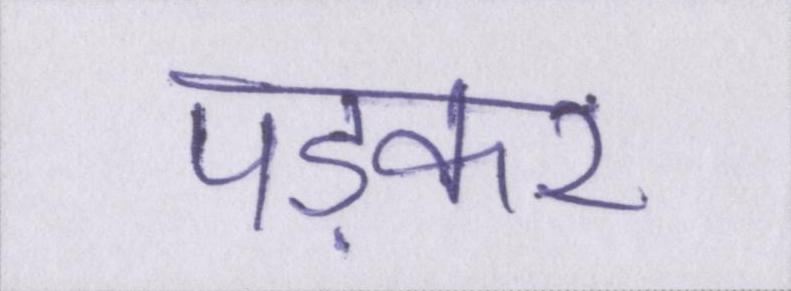 पड़कर